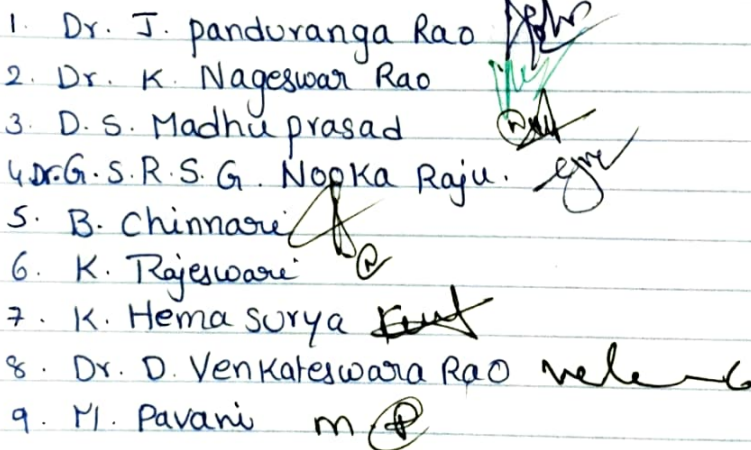 1. Dr. J. panduranga Rao
2. Dr. K. Nageswar Rao
3. D. S. Madhu prasad
4. Dr. G. S. R. S. G. Nooka Raju.
5. B. Chinnari
6. K. Rajeswari
7. K. Hema Surya
8. Dr. D. Venkateswara Rao
9. M. Pavani